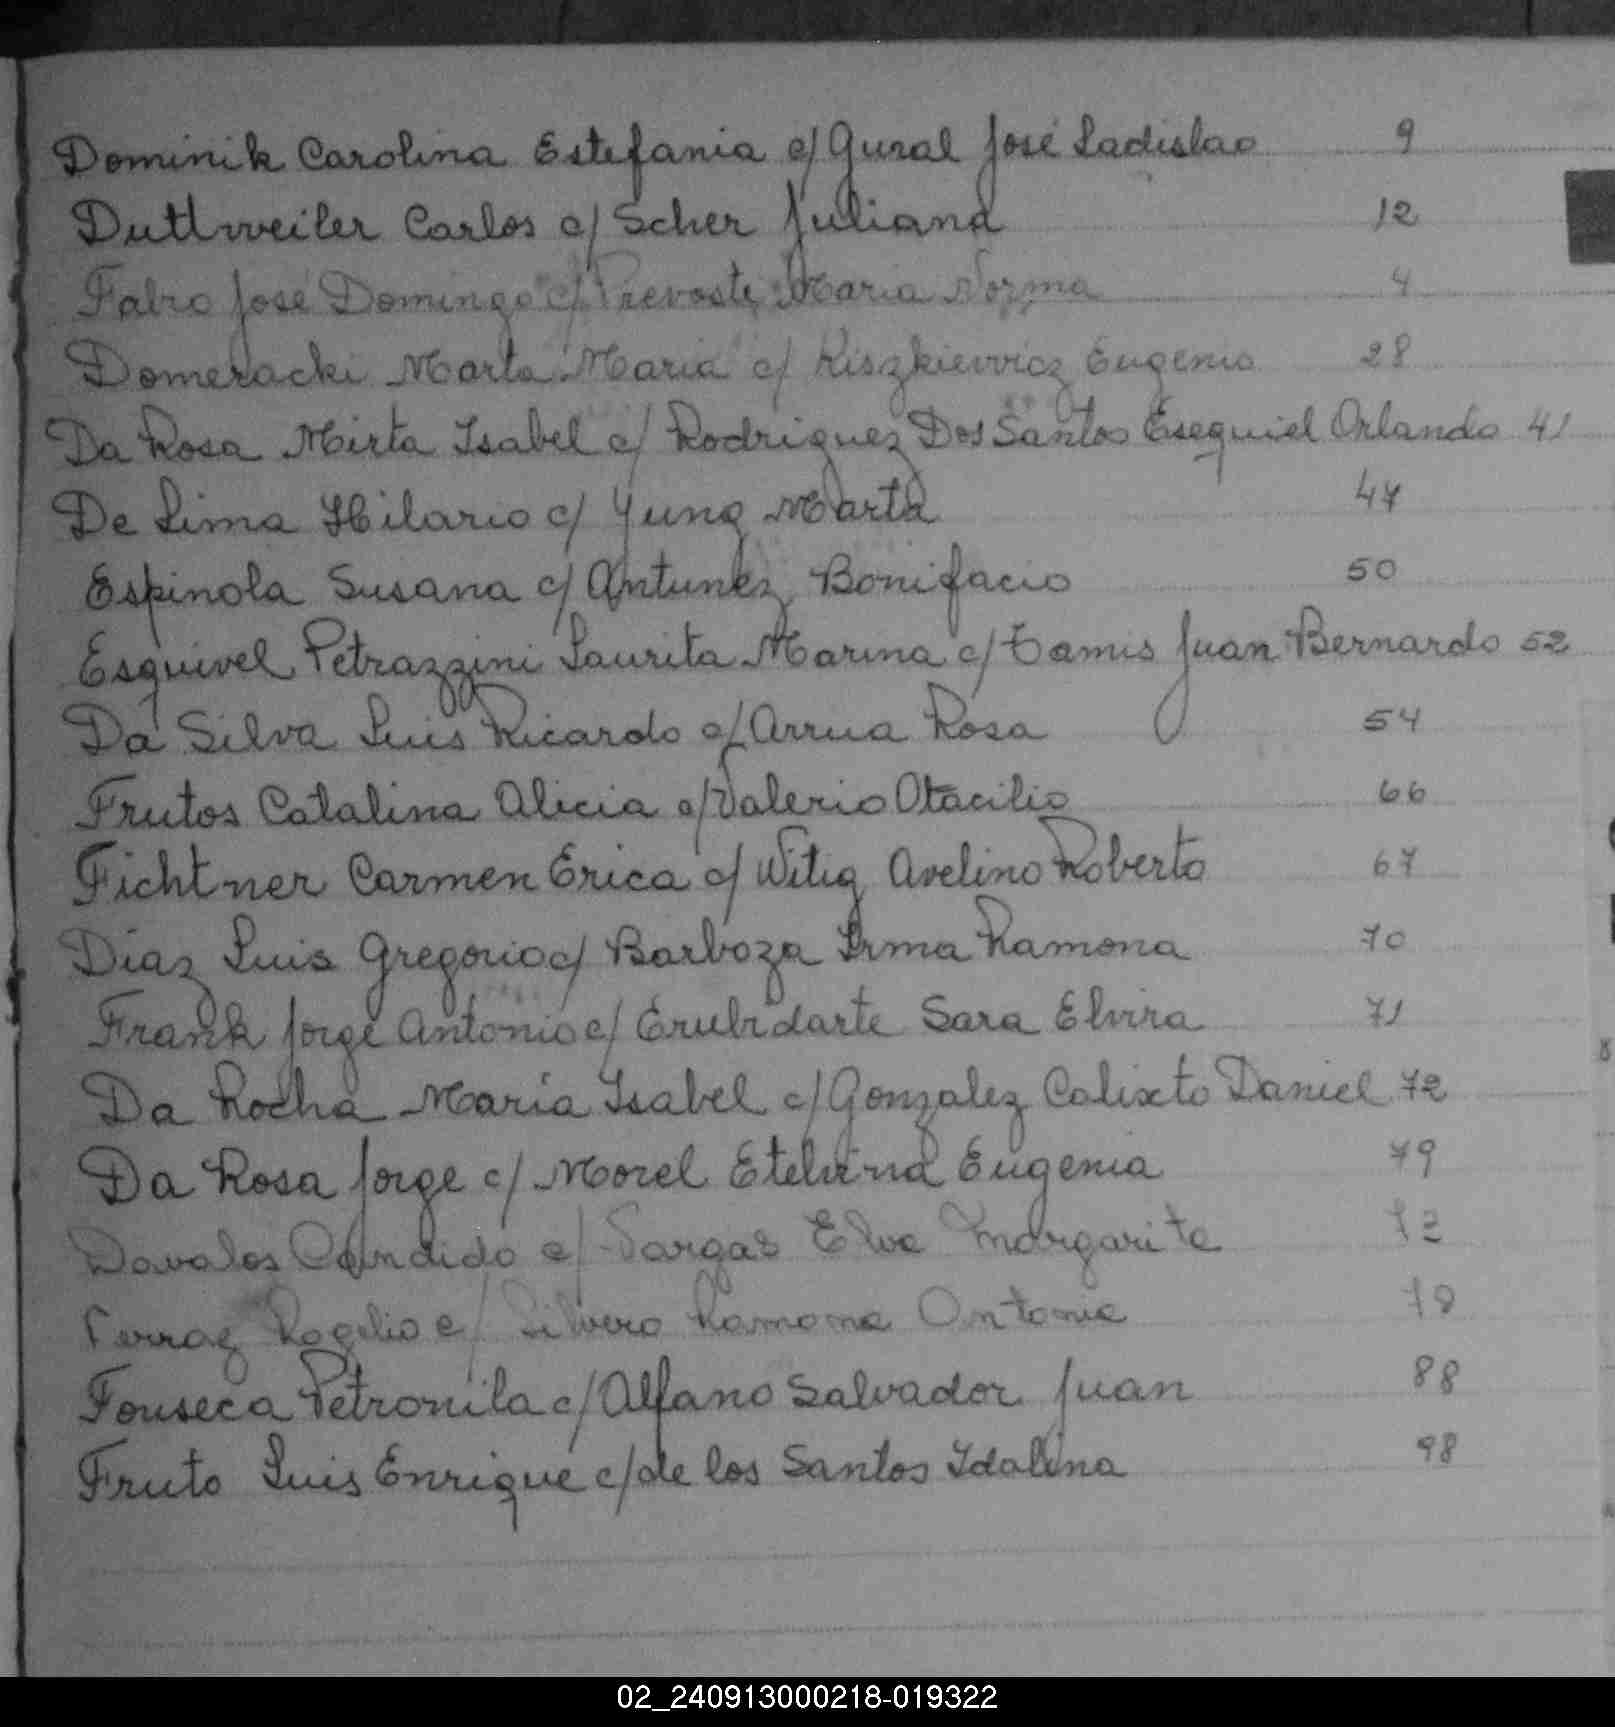 Dominik Carolina Estefania c/ Gural José Ladislao 9
Duttweiler Carlos c/ Scher Juliana 12
Fabro José Domingo c/ Prevoste Maria Norma 4
Domeracki Marta Maria c/ Kiszkiewicz Eugenio 28
Da Rosa Mirta Isabel c/ Rodriguez Dos Santos Esequiel Orlando 41
De Lima Hilario c/ Yung Marta 47
Espinola Susana c/ Antunez Bonifacio 50
Esquivel Petrazzini Laurita Marina c/ Tamis Juan Bernardo 52
Da Silva Luis Ricardo c/ Arrua Rosa 54
Frutos Catalina Alicia c/ Valerio Otacilio 66
Fichtner Carmen Erica c/ Witig Avelino Roberto 67
Diaz Luis Gregorio c/ Barboza Irma Ramona 70
Frank Jorge Antonio c/ Sara Elvira 71
Da Rocha María Isabel c/ Gonzalez Calixto Daniel 72
Da Rosa Jorge c/ Morel Etelvina Eugenia 79
Davalos Candido c/ Vargas Elva Margarita
Ferraz Rogelio c/ Silvero Ramona Antonia 78
Fonseca Petronila c/ Alfano Salvador Juan 88
Fruto Luis Enrique c/ de los Santos Idalina 98
02_240913000218-019322